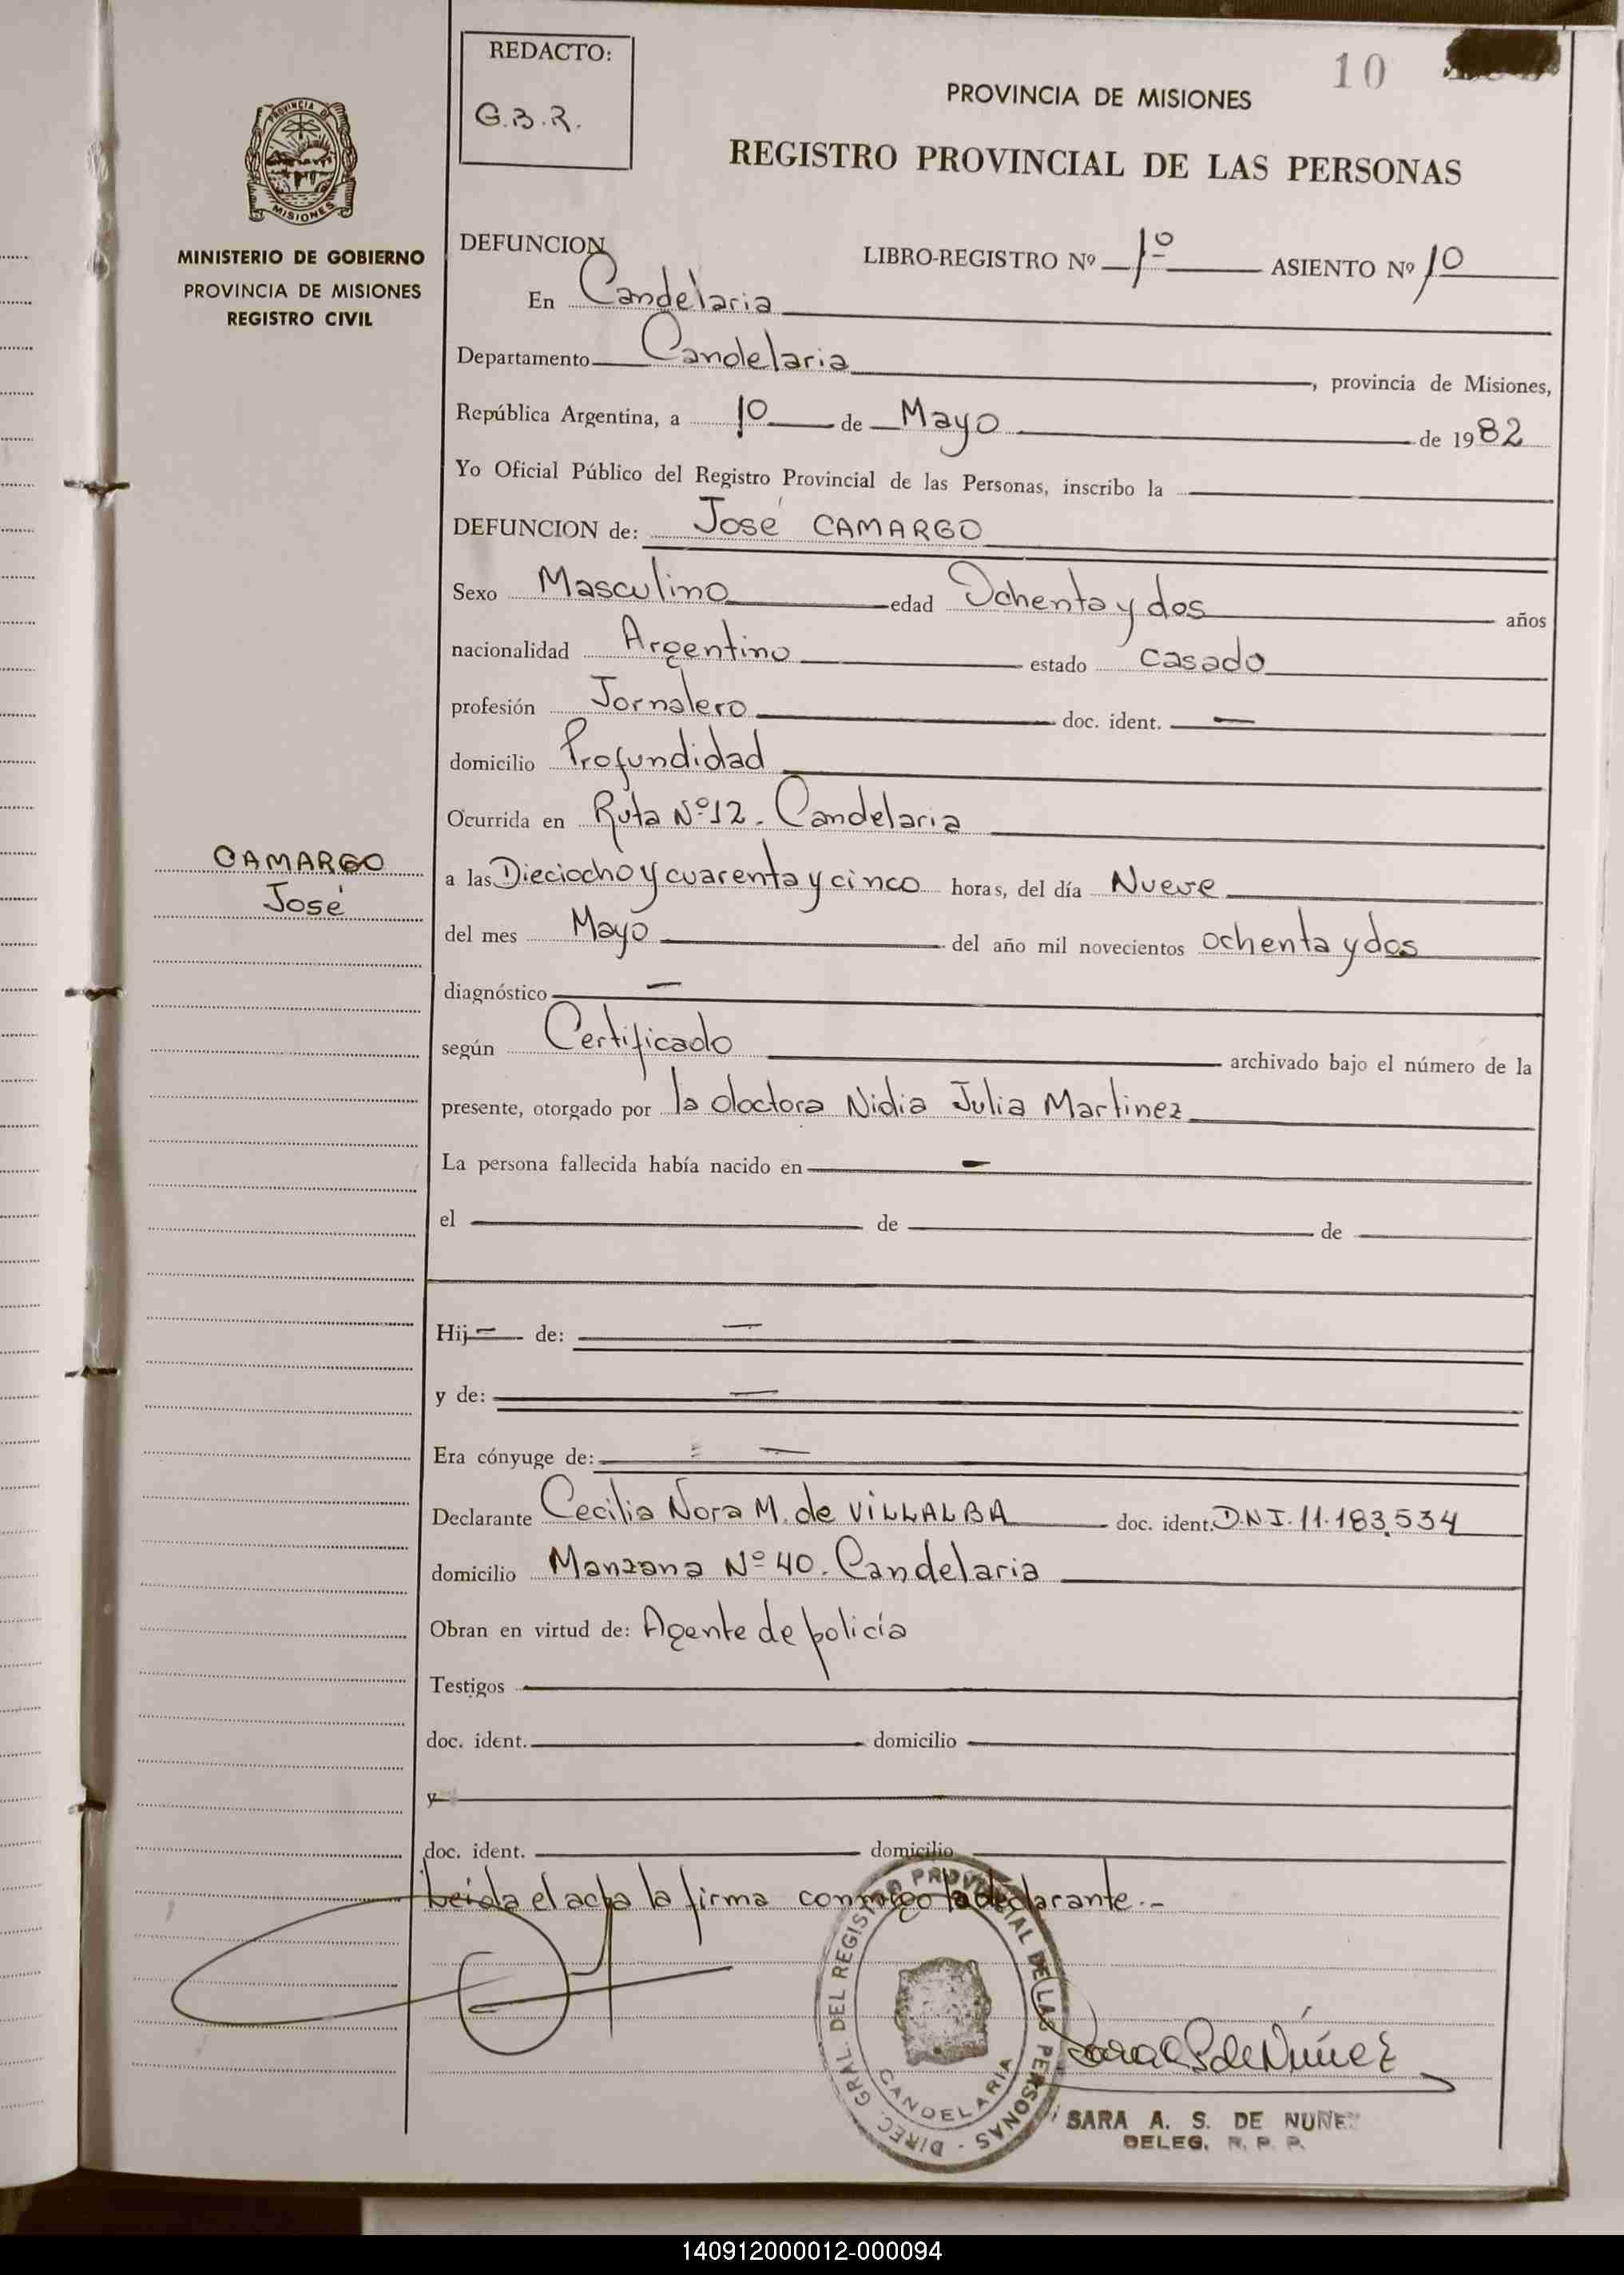 REDACTO:
G.B.R.
10
PROVINCIA DE MISIONES
REGISTRO PROVINCIAL DE LAS PERSONAS
PROVINCIA DE
MISIONES
MINISTERIO DE GOBIERNO
PROVINCIA DE MISIONES
REGISTRO CIVIL
DEFUNCION
LIBRO-REGISTRO Nº 1º ASIENTO Nº 10
En Candelaria
Departamento Candelaria, provincia de Misiones,
República Argentina, a 10 de Mayo de 1982
Yo Oficial Público del Registro Provincial de las Personas, inscribo la
DEFUNCION de: José CAMARGO
Sexo Masculino edad Ochenta y dos años
nacionalidad Argentino estado casado
profesión Jornalero doc. ident. —
domicilio Profundidad
Ocurrida en Ruta Nº 12. Candelaria
CAMARGO
José
a las Dieciocho y cuarenta y cinco horas, del día Nueve
del mes Mayo del año mil novecientos ochenta y dos
diagnóstico —
según Certificado archivado bajo el número de la
presente, otorgado por la doctora Nidia Julia Martinez
La persona fallecida había nacido en —
el de de
Hij— de: —
y de: —
Era cónyuge de: —
Declarante Cecilia Nora M. de VILLALBA doc. ident. D.N.I. 11.183.534
domicilio Manzana Nº 40. Candelaria
Obran en virtud de: Agente de policía
Testigos
doc. ident. domicilio
y
doc. ident. domicilio
Leida el acta la firma conmigo la declarante.-
DIREC. GRAL. DEL REGISTRO PROVINCIAL DE LAS PERSONAS
CANDELARIA
Sara S de Núñez
SARA A. S. DE NUÑEZ
DELEG. R. P. P.
140912000012-000094